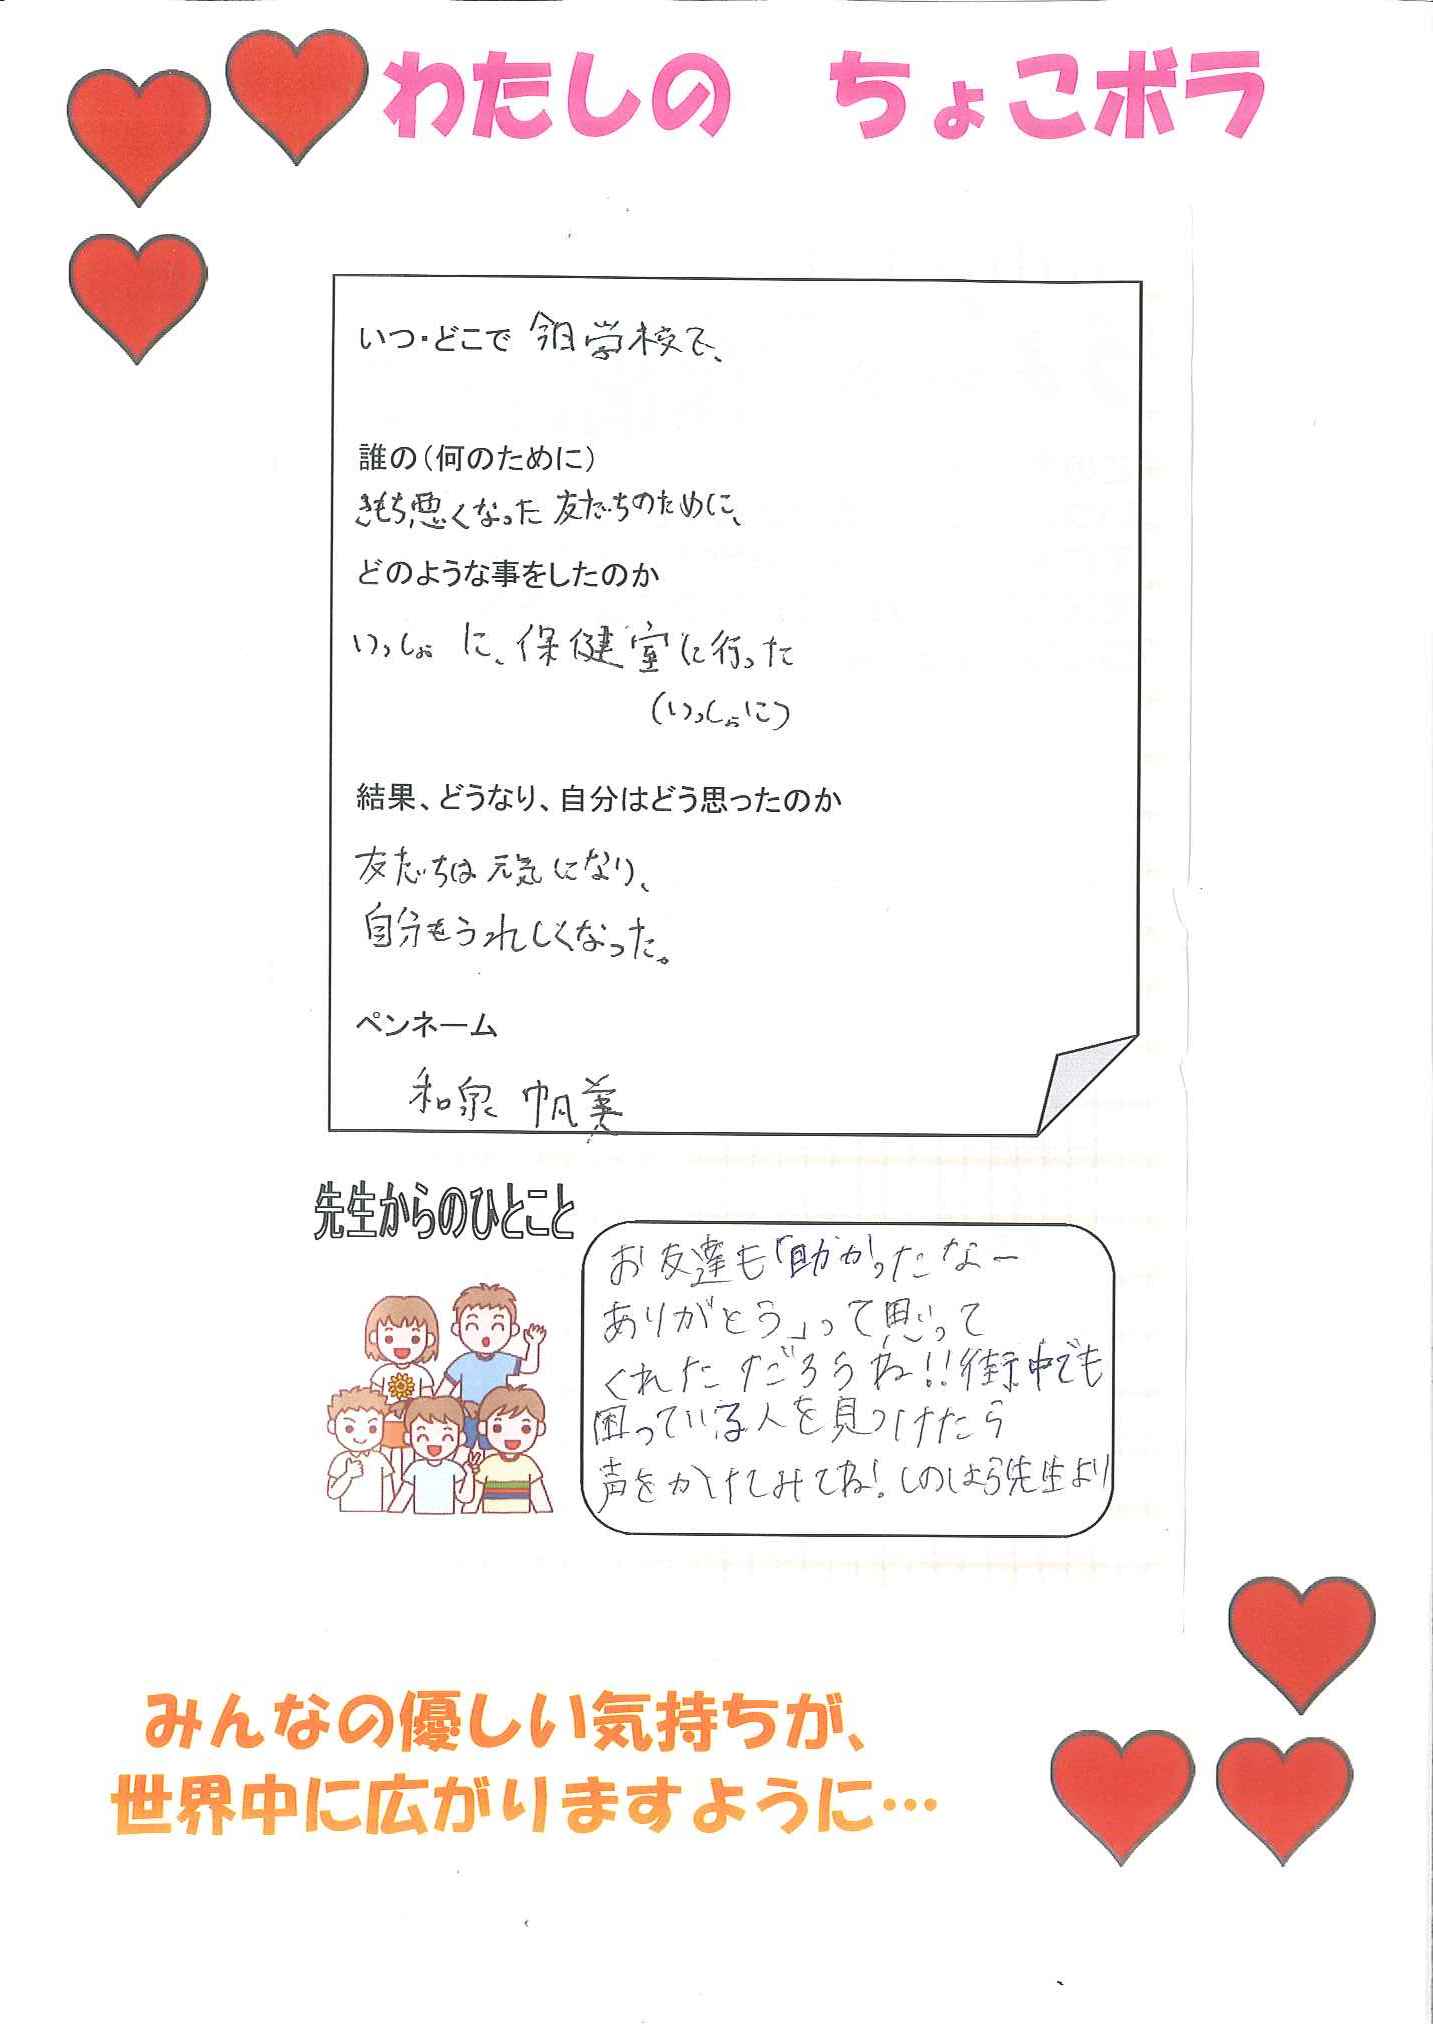 わたしの　ちょこボラ
いつ・どこで 今日学校で、
誰の（何のために）
きもち悪くなった友だちのために、
どのような事をしたのか
いっしょに、保健室に行った
（いっしょに）
結果、どうなり、自分はどう思ったのか
友だちは元気になり、
自分もうれしくなった。
ペンネーム
和泉 帆美
先生からのひとこと
お友達も「助かったなー
ありがとう」って思って
くれただろうね!!街中でも
困っている人を見つけたら
声をかけてみてね!しのはら先生より
みんなの優しい気持ちが、
世界中に広がりますように…